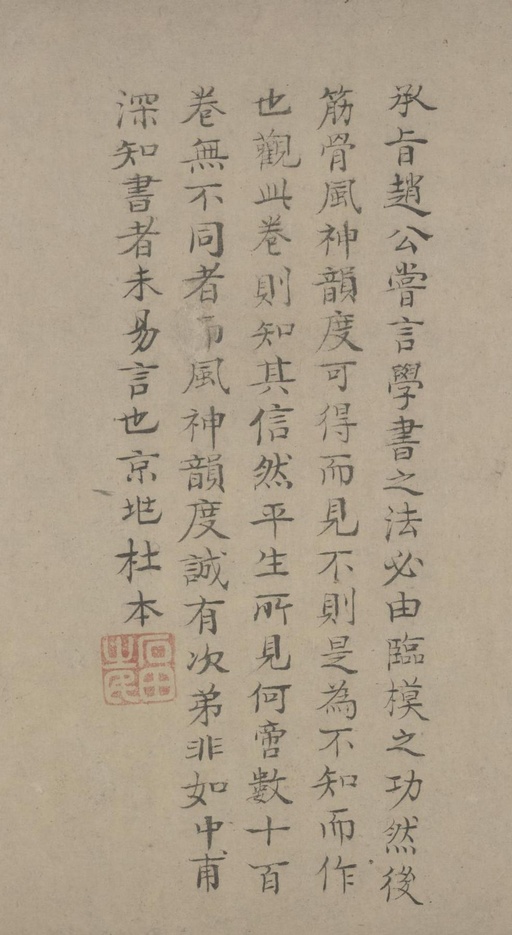 承旨趙公嘗言學書之法必由臨模之功然後
筋骨風神韻度可得而見不則是為不知而作
也觀此卷則知其信然平生所見何啻數十百
卷無不同者而風神韻度誠有次第非如中甫
深知書者未易言也京地杜本